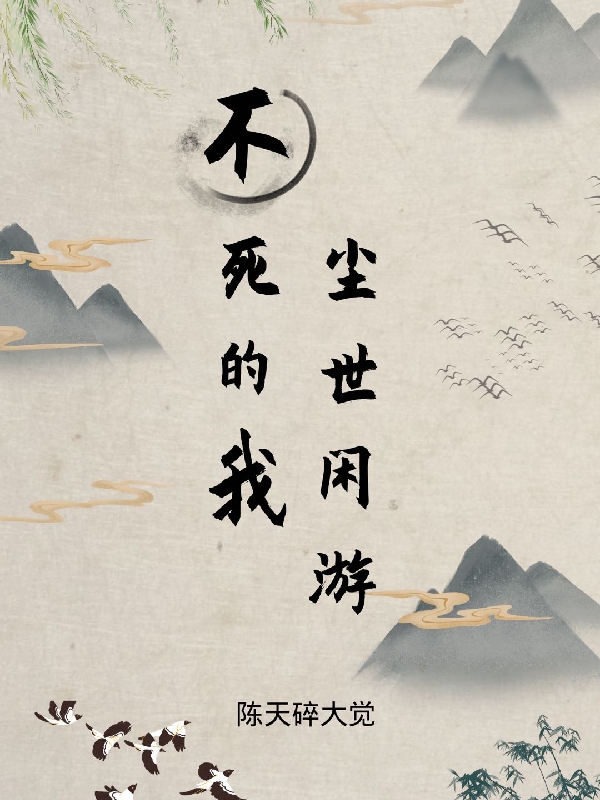 不死的我
尘世闲游
陈天碎大觉